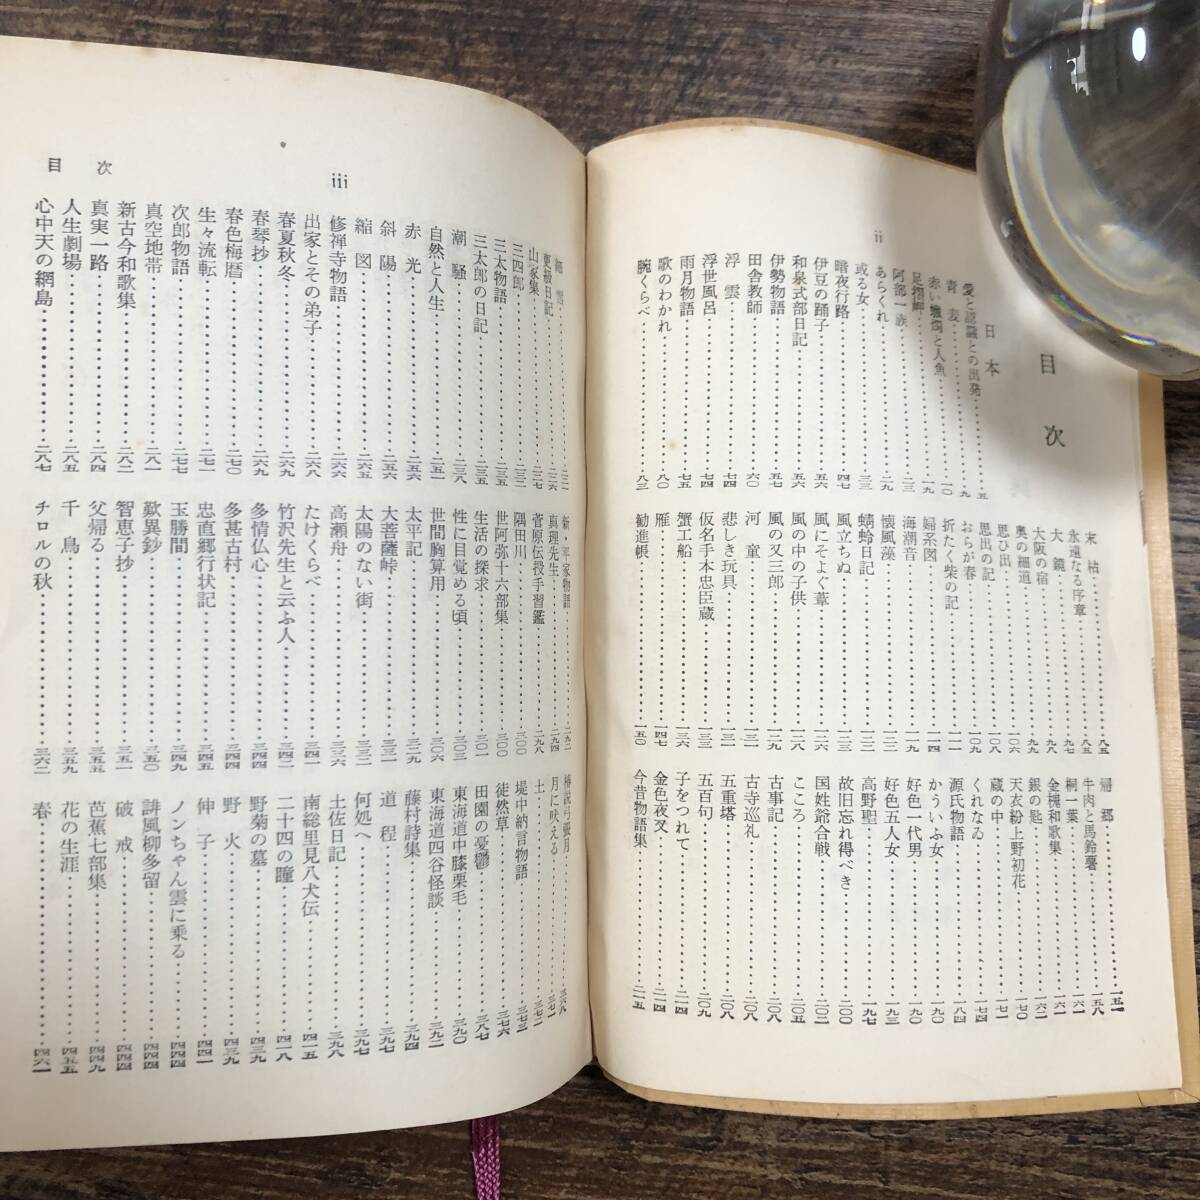 ii
目次
日本
愛と認識との出発…五
青麦…九
赤い蠟燭と人魚…一〇
足摺岬…一九
阿部一族…二三
あらくれ…二九
或る女…三三
暗夜行路…四七
伊豆の踊子…五五
和泉式部日記…五七
伊勢物語…五七
田舎教師…六〇
浮雲…七四
浮世風呂…七四
雨月物語…七五
歌のわかれ…八〇
腕くらべ…八三
末枯…八五
永遠なる序章…八五
大鏡…九七
大阪の宿…九八
奥の細道…九九
思ひ出…一〇六
思出の記…一〇八
おらが春…一〇九
折たく柴の記…一一一
婦系図…一一四
海潮音…一一九
懐風藻…一二三
蜻蛉日記…一二三
風立ちぬ…一二三
風にそよぐ葦…一二三
風の中の子供…一二八
風の又三郎…一二九
河童…一三一
悲しき玩具…一三二
仮名手本忠臣蔵…一三三
蟹工船…一三六
雁…一四七
勧進帳…一五〇
帰郷…一五一
牛肉と馬鈴薯…一五八
桐一葉…一六一
金槐和歌集…一六一
銀の匙…一六二
天衣紛上野初花…一七〇
蔵の中…一七一
くれなゐ…一七四
源氏物語…一八四
かういふ女…一九〇
好色一代男…一九〇
好色五人女…一九三
高野聖…一九七
故旧忘れ得べき…二〇〇
国姓爺合戦…二〇二
こころ…二〇五
古事記…二〇八
古寺巡礼…二〇八
五重塔…二〇八
五百句…二〇九
子をつれて…二一四
金色夜叉…二一四
今昔物語集…二一五
目次
iii
細雪…二二一
更級日記…二二六
山家集…二二七
三四郎…二三二
三太物語…二三五
三太郎の日記…二三五
潮騒…二三八
自然と人生…二五一
赤光…二五四
斜陽…二五六
縮図…二六五
修禅寺物語…二六六
出家とその弟子…二六八
春夏秋冬…二六九
春琴抄…二六九
春色梅暦…二七〇
生々流転…二七一
次郎物語…二七七
真空地帯…二八一
新古今和歌集…二八二
真実一路…二八四
人生劇場…二八五
心中天の網島…二八七
新・平家物語…二九二
真理先生…二九四
菅原伝授手習鑑…二九八
隅田川…三〇〇
世阿弥十六部集…三〇〇
生活の探求…三〇一
性に目覚める頃…三〇三
世間胸算用…三〇六
太平記…三二九
大菩薩峠…三三一
太陽のない街…三三二
高瀬舟…三三六
たけくらべ…三四一
竹沢先生と云ふ人…三四二
多情仏心…三四四
多甚古村…三四四
忠直卿行状記…三四五
玉勝間…三四九
歎異鈔…三五〇
智恵子抄…三五一
父帰る…三五五
千鳥…三五九
チロルの秋…三六二
椿説弓張月…三六八
月に吠える…三七一
土…三七二
堤中納言物語…三七三
徒然草…三七六
田園の憂鬱…三八七
東海道中膝栗毛…三九〇
東海道四谷怪談…三九二
藤村詩集…三九四
道程…三九七
何処へ…三九七
土佐日記…三九八
南総里見八犬伝…四一五
二十四の瞳…四一八
野菊の墓…四三九
野火…四三九
伸子…四四一
ノンちゃん雲に乗る…四四四
誹風柳多留…四四四
破戒…四四四
芭蕉七部集…四四九
花の生涯…四五五
春…四六一